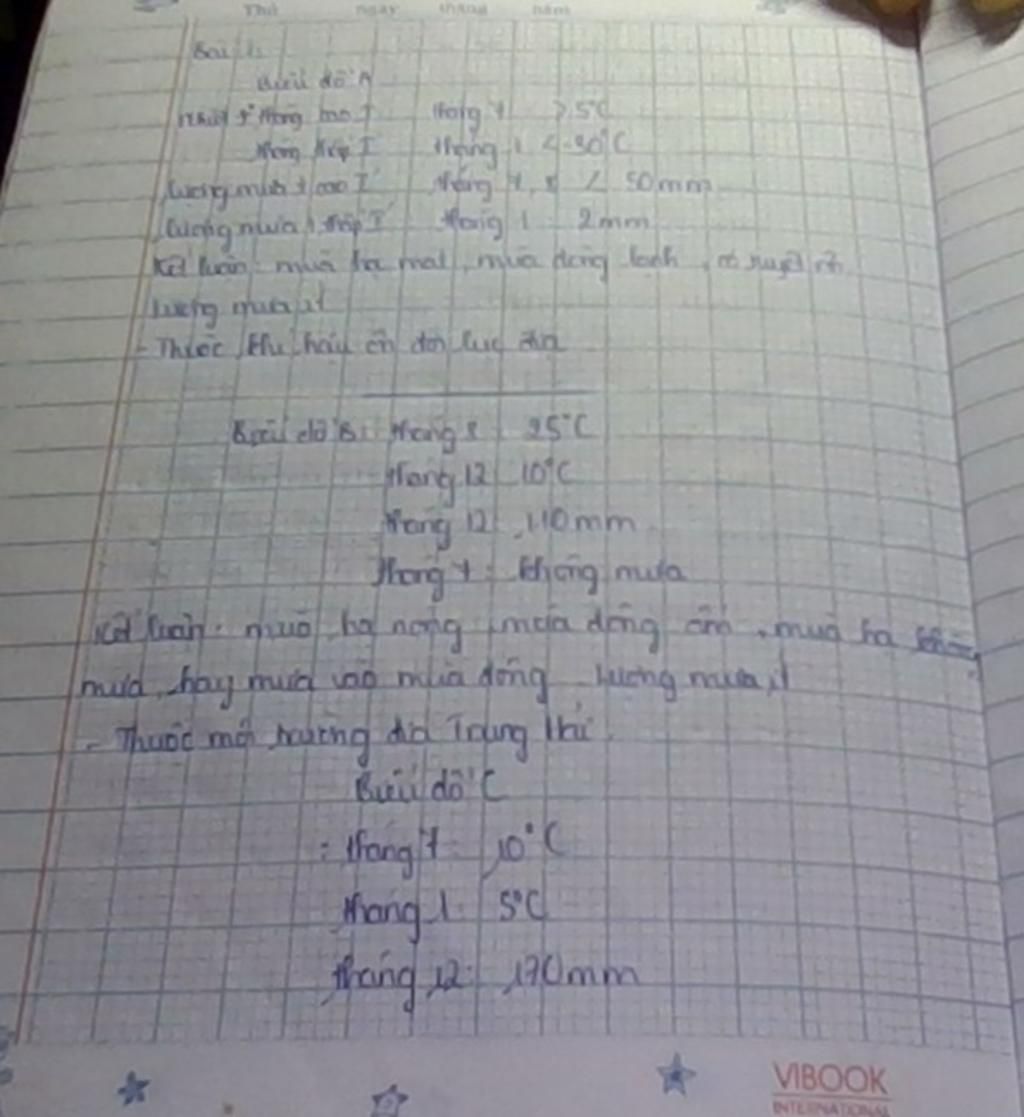 Thứ ngày tháng năm
Bài 1:
Biểu đồ A
tháng cao I tháng 7 > 5°C
tháng thấp I tháng 1 < -30°C
Lượng mưa t cao I tháng 7, 8 < 50mm
Lượng mưa t thấp I tháng 1: 2mm
Kết luận: mùa hạ mát, mùa đông lạnh, có
lượng mưa ít
- Thuộc khí hậu ôn đới lục địa
Biểu đồ B: tháng 8 25°C
tháng 12 10°C
tháng 12 110mm
tháng 7: không mưa
Kết luận: mùa hạ nóng, mùa đông ấm, mùa hạ không
mưa, hay mưa vào mùa đông, lượng mưa ít
- Thuộc môi trường địa Trung Hải
Biểu đồ C
: tháng 7: 10°C
tháng 1: 5°C
tháng 12: 170mm
VIBOOK
INTERNATIONAL